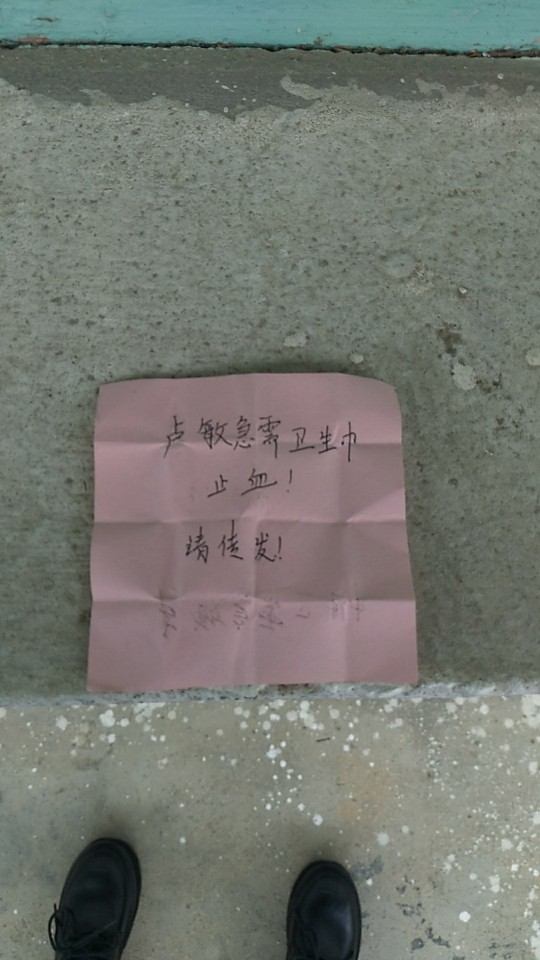 卢敏急需卫生巾
止血！
请传发！